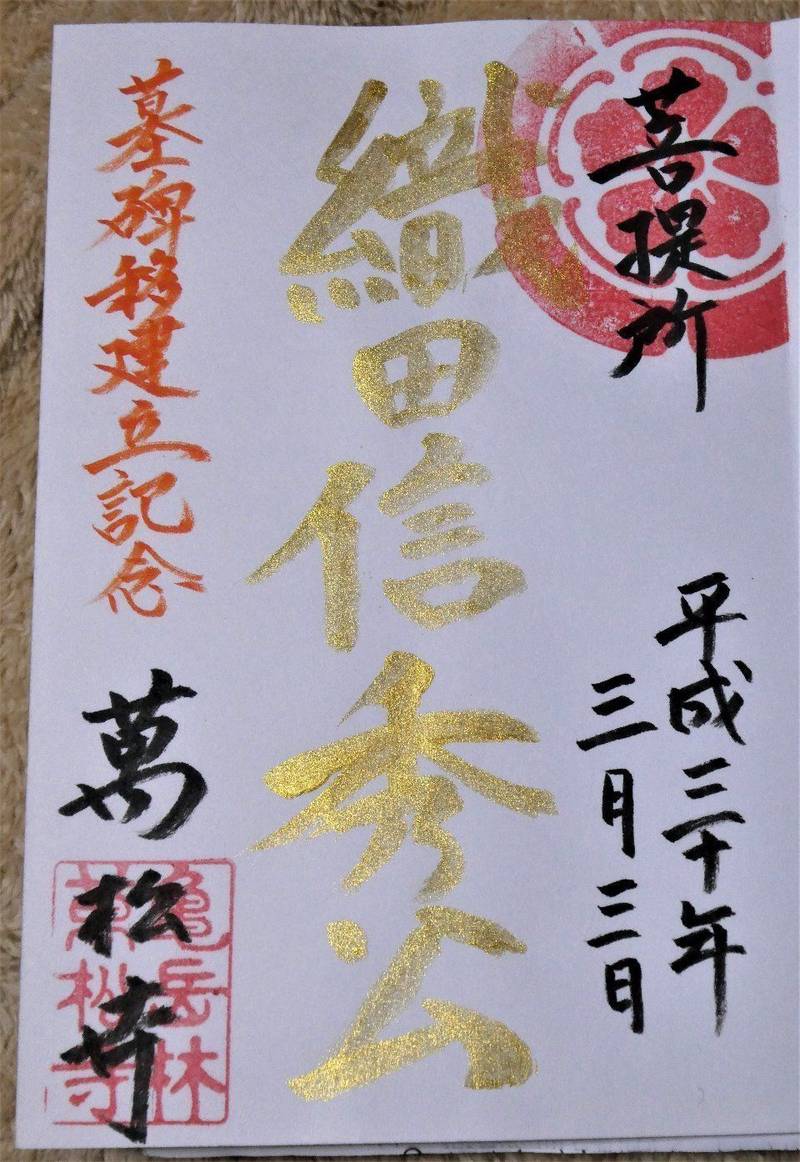 菩提所
平成三十年
三月三日
織田信秀公
墓碑移建立記念
萬松寺
亀岳林
萬松寺